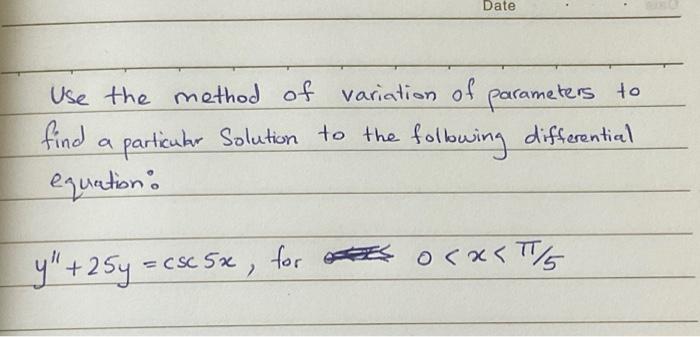 Date
Use the method of variation of parameters to
find a particular Solution to the following differential
equation:
y" + 25y = csc 5x, for 0 < x < π/5